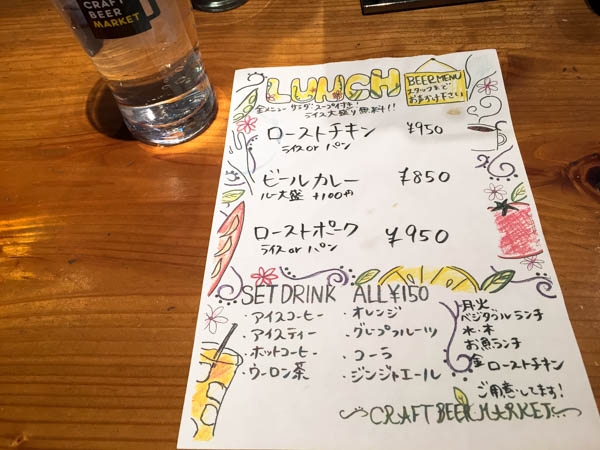 CRAFT
BEER
MARKET
LUNCH
BEER MENU
スタッフまで
おたずね下さい
全メニュー サラダ・スープ付き!
ライス大盛り無料!!
ローストチキン ¥950
ライス or パン
ビールカレー ¥850
ルー大盛 +100円
ローストポーク ¥950
ライス or パン
SET DRINK ALL ¥150
・アイスコーヒー
・アイスティー
・ホットコーヒー
・ウーロン茶
・オレンジ
・グレープフルーツ
・コーラ
・ジンジャエール
月・火
ベジタブルランチ
水・木
お魚ランチ
金 ローストチキン
ご用意してます!
CRAFT BEER MARKET